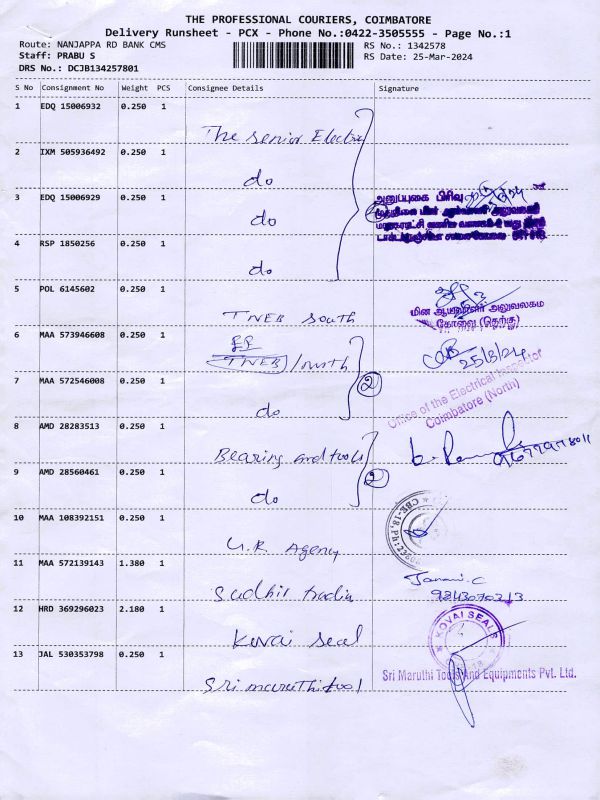 THE PROFESSIONAL COURIERS, COIMBATORE
Delivery Runsheet - PCX - Phone No.:0422-3505555 - Page No.:1
Route: NANJAPPA RD BANK CMS
RS No.: 1342578
Staff: PRABU S
RS Date: 25-Mar-2024
DRS No.: DCJB134257801
S No Consignment No Weight PCS Consignee Details Signature
1 EDQ 15006932 0.250 1
The senior Electric
2 IXM 505936492 0.250 1
do
3 EDQ 15006929 0.250 1
அனுப்புகை பிரிவு
do
4 RSP 1850256 0.250 1
do
5 POL 6145602 0.250 1
TNEB South
மின ஆய்வாளர் அலுவலகம
கோவை (தெற்கு)
6 MAA 573946608 0.250 1
TNEB/North
25/3/24
7 MAA 572546008 0.250 1
2
Office of the Electrical Inspector
Coimbatore (North)
do
8 AMD 28283513 0.250 1
Bearing and tools
9 AMD 28560461 0.250 1
2
do
10 MAA 108392151 0.250 1
U.R. Agency
11 MAA 572139143 1.380 1
Janani.C
Sudhir tradin
12 HRD 369296023 2.180 1
KOVAI SEALS
Kovai seal
13 JAL 530353798 0.250 1
Sri Maruthi Tools And Equipments Pvt. Ltd.
Sri maruthi tool